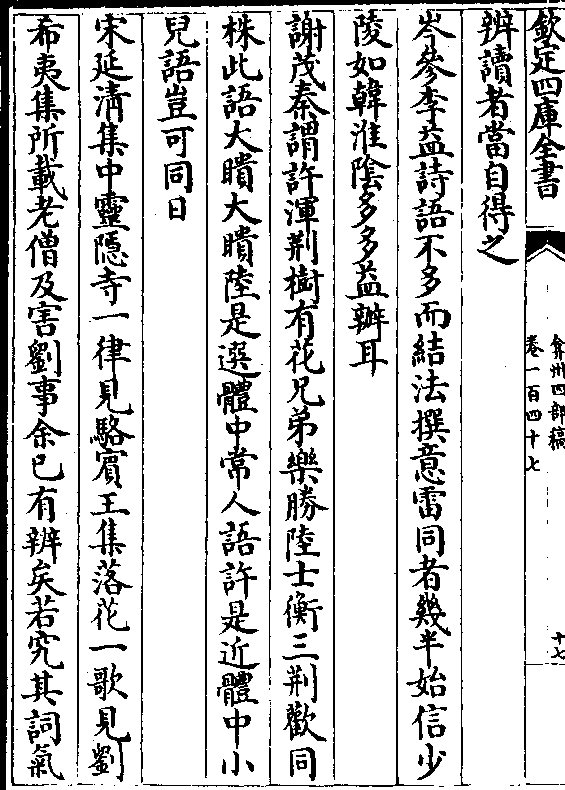 欽定四庫全書
弇州四部稿
卷一百四十七
十七
辨讀者當自得之
岑參李益詩語不多而結法撰意雷同者幾半始信少
陵如韓淮陰多多益辦耳
謝茂秦謂許渾荆樹有花兄弟樂勝陸士衡三荆歡同
株此語大瞶大瞶陸是選體中常人語許是近體中小
兒語豈可同日
宋延清集中靈隠寺一律見駱賓王集落花一歌見劉
希夷集所載老僧及害劉事余已有辨矣若究其詞氣